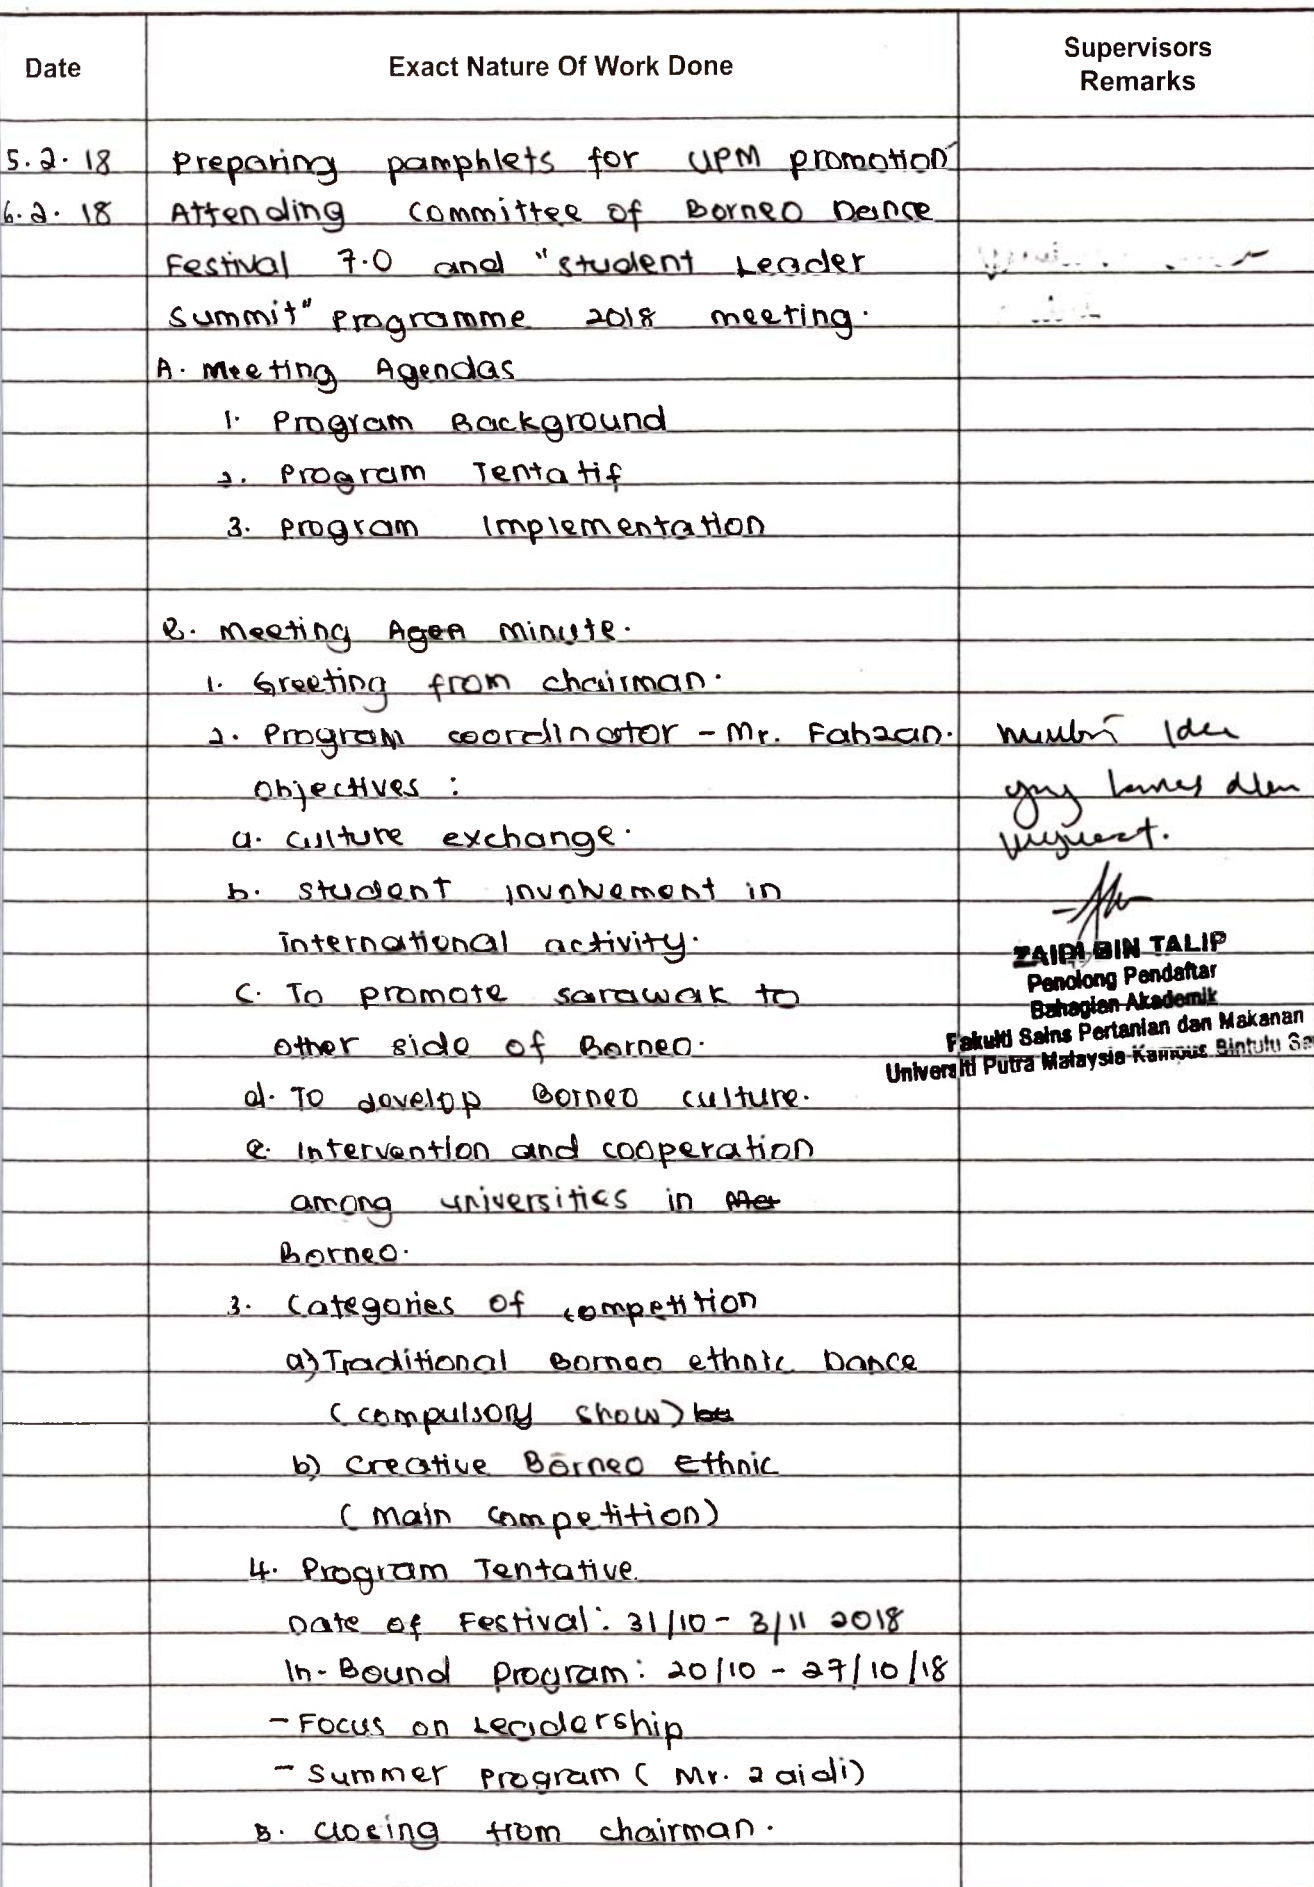 Date
Exact Nature Of Work Done
Supervisors
Remarks
5.2.18 Preparing pamphlets for UPM promotion
6.2.18 Attending Committee of Borneo Dance
Festival 7.0 and "Student Leader
Summit" Programme 2018 meeting.
A. Meeting Agendas
1. Program Background
2. Program Tentatif
3. Program Implementation
B. Meeting Agen Minute.
1. Greeting from chairman.
2. Program coordinator - Mr. Fahzan.
Objectives :
a. Culture exchange.
b. Student involvement in
international activity.
c. To promote Sarawak to
other side of Borneo.
d. To develop Borneo culture.
e. Intervention and cooperation
among universities in
Borneo.
3. Categories of competition
a) Traditional Borneo ethnic Dance
(compulsory show)
b) Creative Borneo Ethnic
(main competition)
4. Program Tentative
Date of Festival: 31/10 - 3/11 2018
In-Bound Program: 20/10 - 27/10/18
- Focus on Leadership
- Summer Program (Mr. Zaidi)
5. Closing from chairman.
ZAIDI BIN TALIP
Penolong Pendaftar
Bahagian Akademik
Fakulti Sains Pertanian dan Makanan
Universiti Putra Malaysia Kampus Bintulu